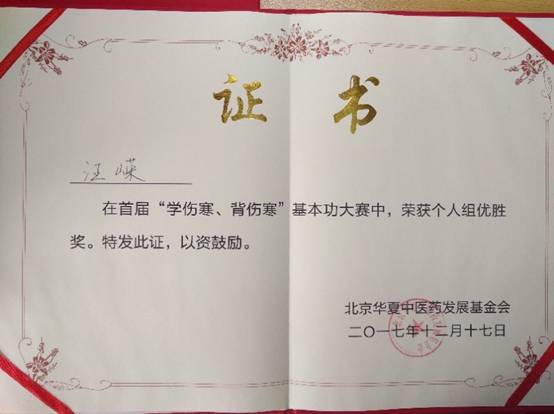 证书
汪嵘
在首届“学伤寒、背伤寒”基本功大赛中，荣获个人组优胜
奖。特发此证，以资鼓励。
北京华夏中医药发展基金会
二〇一七年十二月十七日